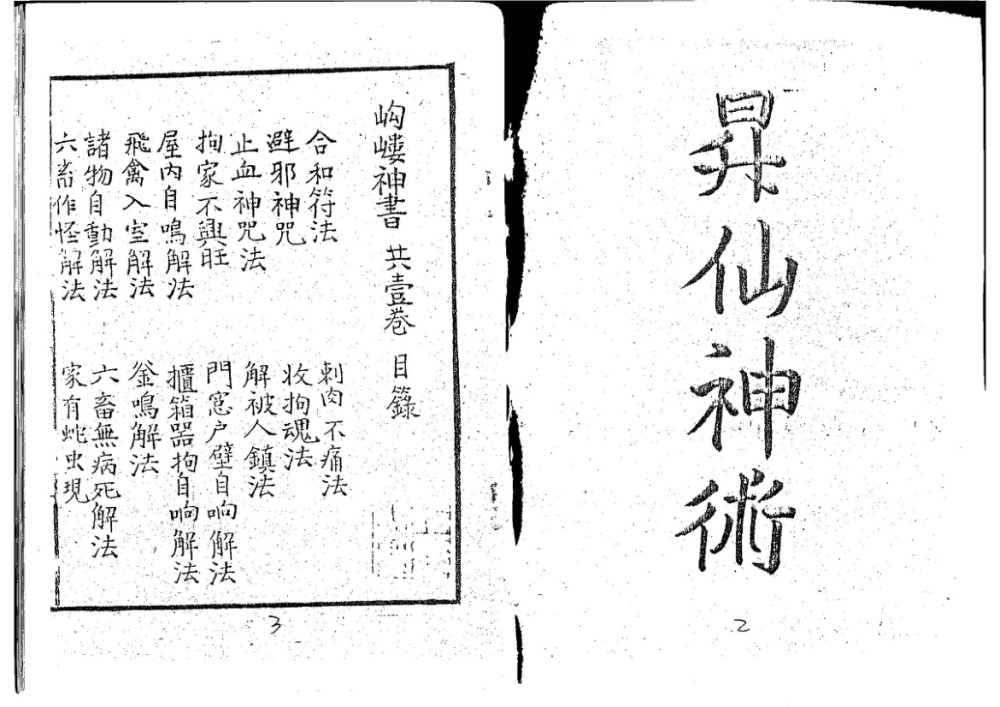 昇仙神術
2
岣嶁神書 共壹卷 目錄
合和符法 刺肉不痛法
避邪神咒 收拘魂法
止血神咒法 解被人鎮法
拘家不興旺 門窓户壁自响解法
屋內自鳴解法 櫃箱器拘自响解法
飛禽入室解法 釜鳴解法
諸物自動解法 六畜無病死解法
六畜作怪解法 家有蛇虫現
3